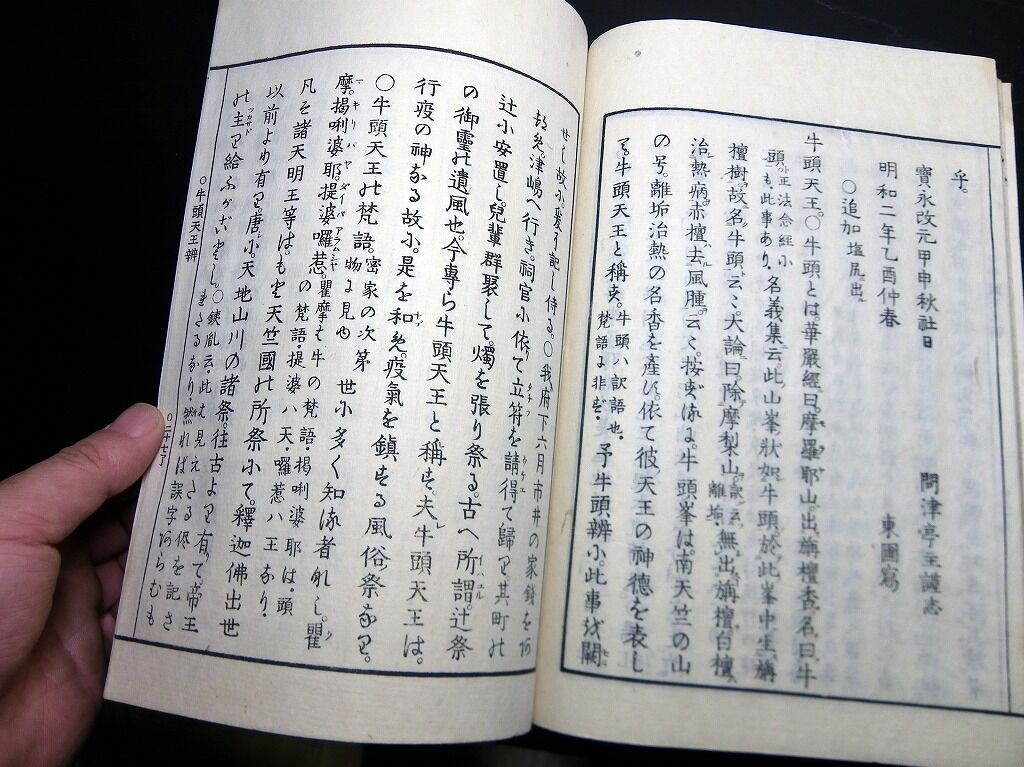 乎。
寶永改元甲申秋社日　問津亭主謹志
明和二年乙酉仲春　東圃寫
○追加 塩尻出
牛頭天王。○牛頭とは。華嚴經曰。摩羅耶山。出旃檀香。名曰牛
頭。正法念經小も此事あり。名義集云。此山峯狀如牛頭。於此峯中生旃
檀樹。故名牛頭云々。大論曰。除摩梨山。無出旃檀。白檀
治熱病。赤檀去風腫。云々。按ずるに。牛頭峯は。南天竺の山
の号。離垢治熱の名香を產し。依て彼天王の神德を表し
る牛頭天王と稱す。牛頭ハ訳語也。梵語に非ず。予牛頭辨小。此事を闕
せし故小爰に記し侍る。○我府下六月市井の家錢を
津嶋へ行き。祠官小依て立符を請得て歸り其町の
辻小安置し。兒輩群聚して。燭を張り祭る。古へ所謂辻祭
の御靈の遺風也。今専ら牛頭天王と稱す。夫牛頭天王は。
行疫の神なる故小。是を和め。疫氣を鎮する風俗祭なり。
○牛頭天王の梵語。密家の次第物に見ゆ 世小多く知る者れし。瞿
摩揭唎婆耶提婆囉惹。瞿摩は牛の梵語。揭唎婆耶は。頭
の梵語。提婆ハ天。囉惹ハ王なり。
凡そ諸天明王等は。もと天竺國の所祭小て。釋迦佛出世
以前より有り。唐小。天地山川の諸祭。往古より有て帝王
の主り給ふがごとし。○鋏胤云。此は見えたる侭を記さ
れたるなり。然れば誤字あらむも
○牛頭天王辨
○二十七了